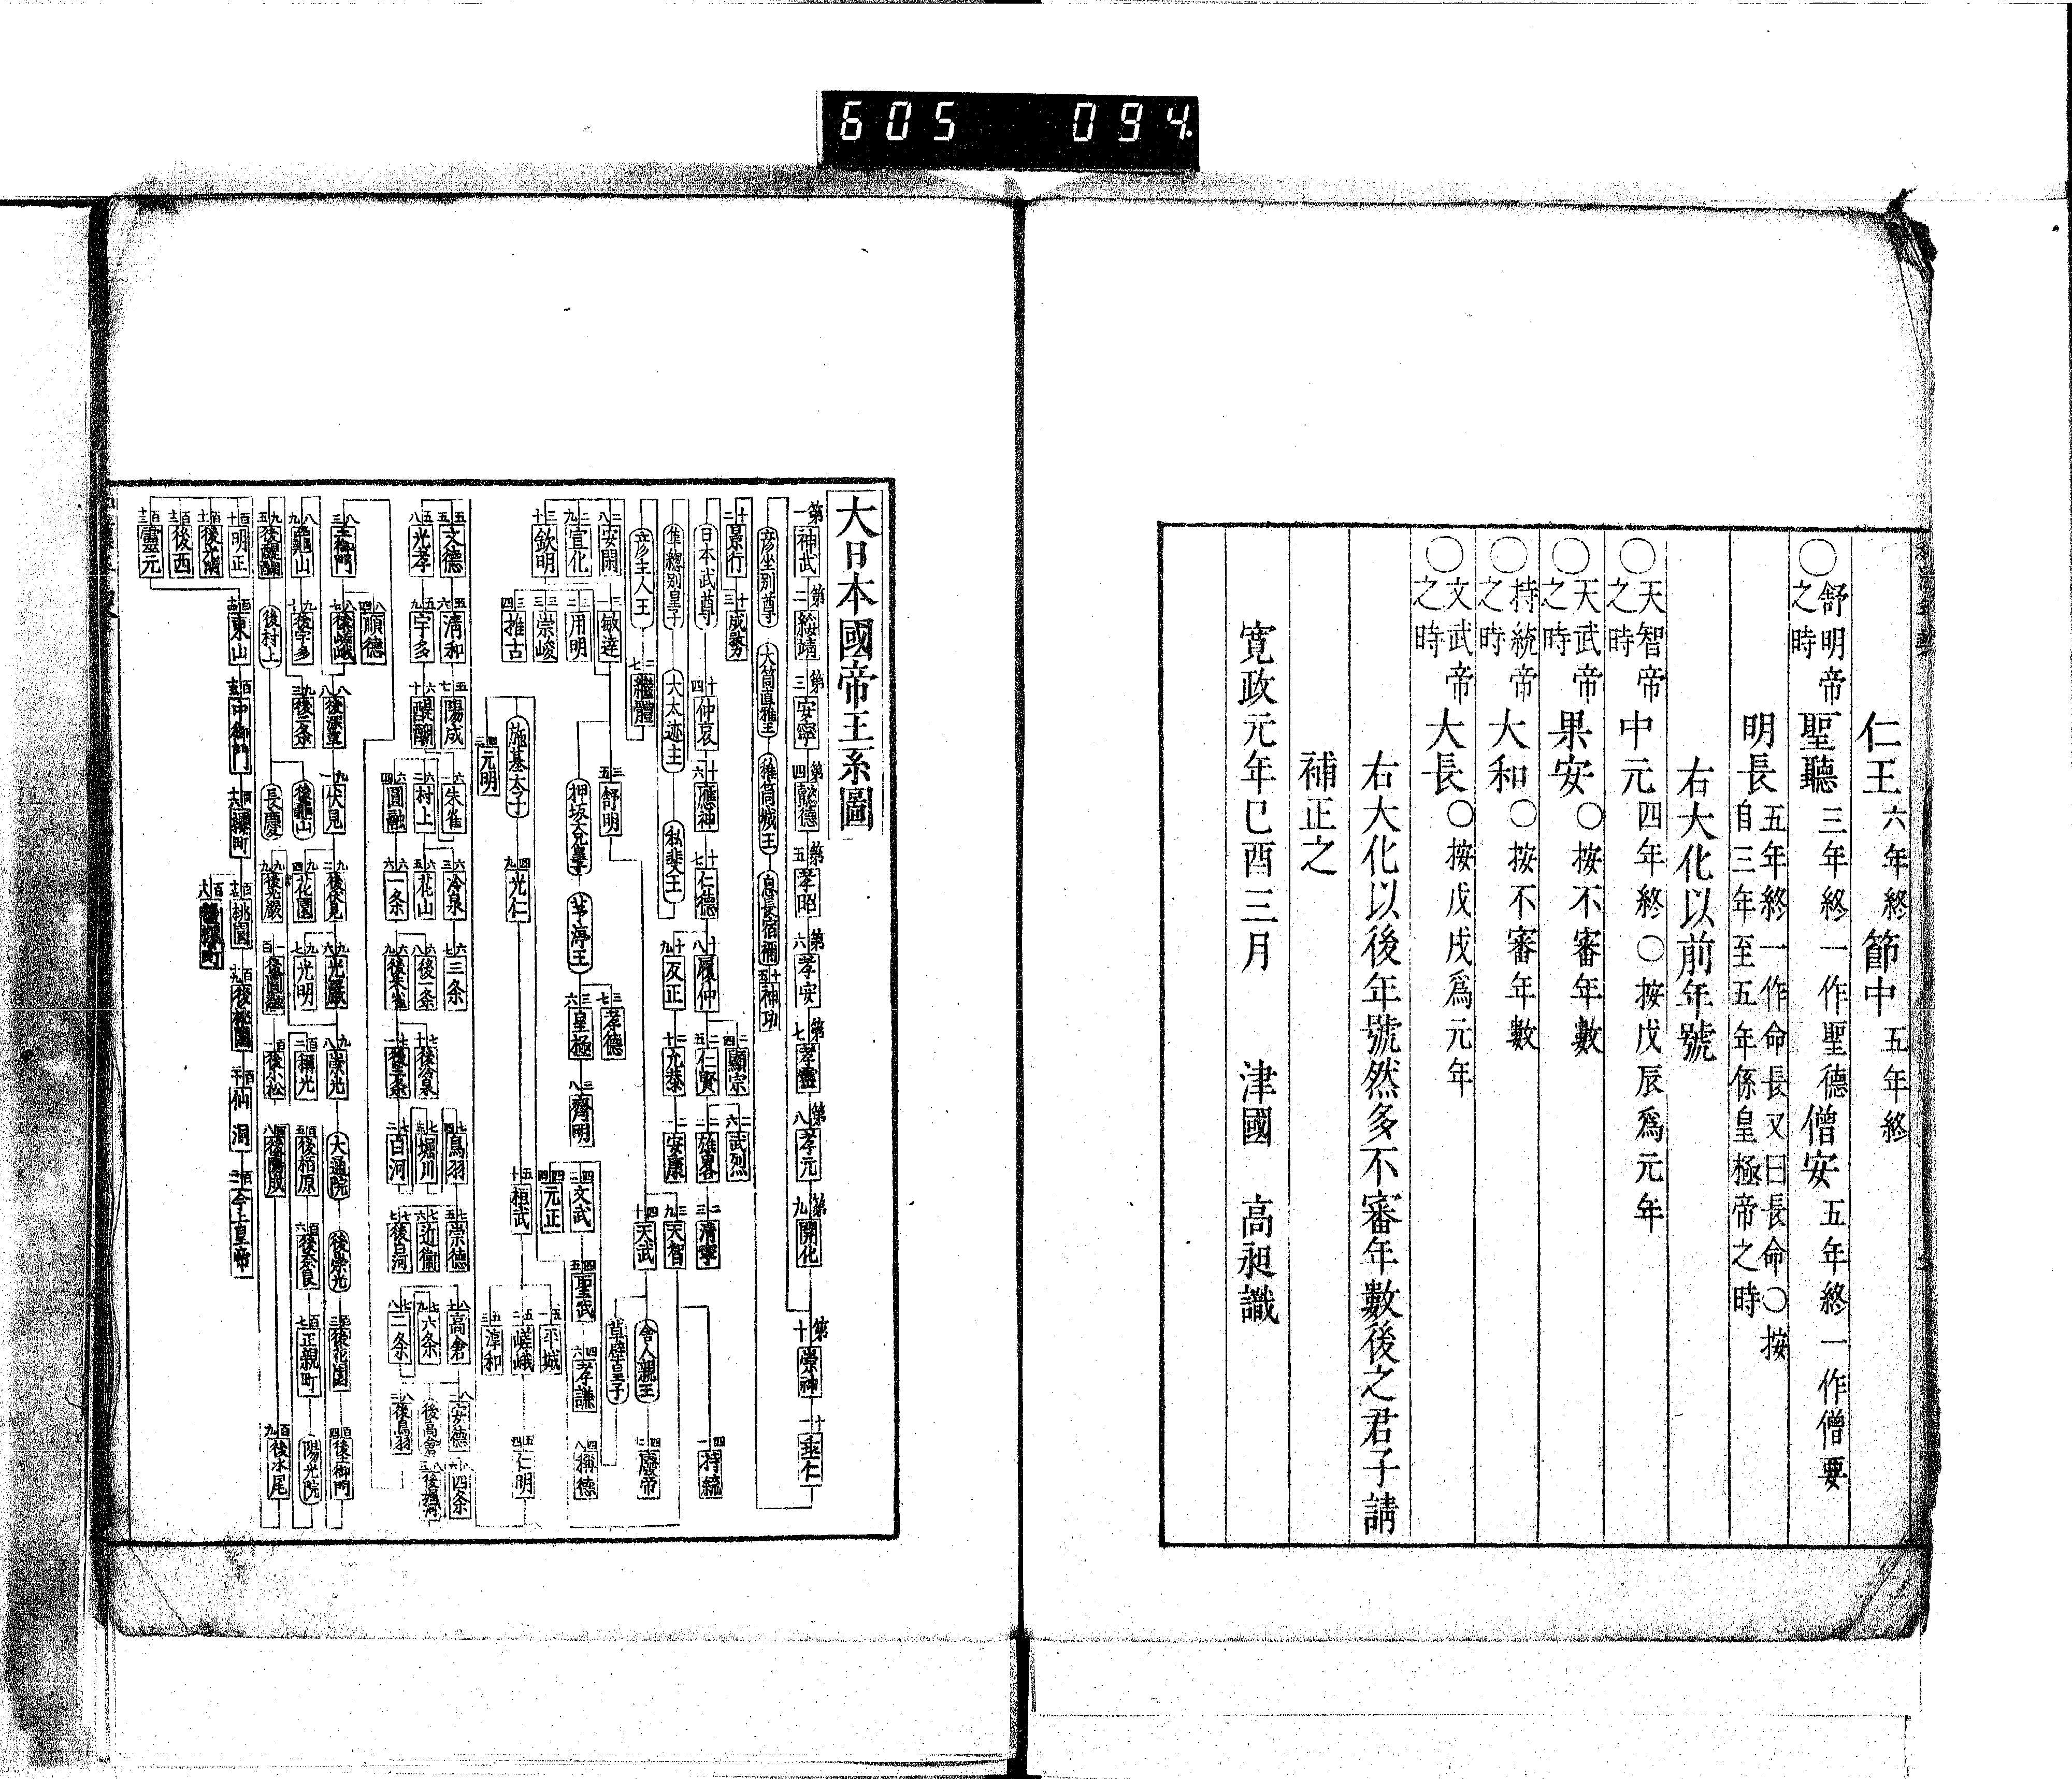 605 094.
仁王六年終節中五年終
○舒明帝之時聖聽三年終一作聖德僧安五年終一作僧要
明長五年終一作命長又曰長命○按自三年至五年係皇極帝之時
右大化以前年號
○天智帝之時中元四年終○按戊辰爲元年
○天武帝之時果安○按不審年數
○持統帝之時大和○按不審年數
○文武帝之時大長○按戊戌爲元年
右大化以後年號然多不審年數後之君子請
補正之
寛政元年巳酉三月 津國 高昶識
大日本國帝王系圖
第一神武 第二綏靖 第三安寧 第四懿德 第五孝昭 第六孝安 第七孝靈 第八孝元 第九開化 第十崇神 十一垂仁
彦坐別尊 大筒直雅王 雅筒城王 息長宿禰 十五神功
十二景行 十三成務
日本武尊 十四仲哀 十六應神 十七仁德 十八履仲 二四顯宗 二五仁賢 二六武烈 二二雄畧 二三清寧 四一持統
隼總別皇子 大太迹主 私斐王 十九反正 二十允恭 二一安康 三九天智
彦主人王 二七繼體 四十天武 舍人親王 四七廢帝
二八安閑 三一敏達 三五舒明 三七孝德 草壁皇子
二九宣化 三二用明 押坂大兄皇子 茅渟王 三六皇極 三八齊明 四二文武 四五聖武 四六孝謙 四八稱德
三十欽明 三三崇峻 四四元正 五一平城
三四推古 施基太子 四九光仁 五十桓武 五二嵯峨 五四仁明
四三元明 五三淳和
五五文德 五六清和 五七陽成 六一朱雀 六三冷泉 六七三条 七四鳥羽 七五崇德 八十高倉 八一安德 八六四条
五八光孝 五九宇多 六十醍醐 六二村上 六五花山 六八後一条 七十後冷泉 七三堀川 七六近衞 七九六条 後高倉 八五後堀河
六四圓融 六六一条 六九後朱雀 七一後三条 七二白河 七七後白河 七八二条 八二後鳥羽
八四順德
八三土御門 八七後嵯峨 八八後深草 九二後伏見 九六光嚴 九八崇光 大通院 後崇光 百三後花園 百四後土御門
八九龜山 九十後宇多 九三後二条 九一伏見 後龜山 九四花園 九七光明 百二稱光 百五後栢原 百六後奈良 百七正親町 陽光院
九五後醍醐 後村上 長慶 九九後光嚴 一百後圓融 百一後小松 百八後陽成 百九後水尾
百十明正 百十四東山 百十五中御門 百十六櫻町 百十七桃園 百十九後桃園 百二十仙洞 百二一今上皇帝
百十一後光明
百十二後西
百十三靈元